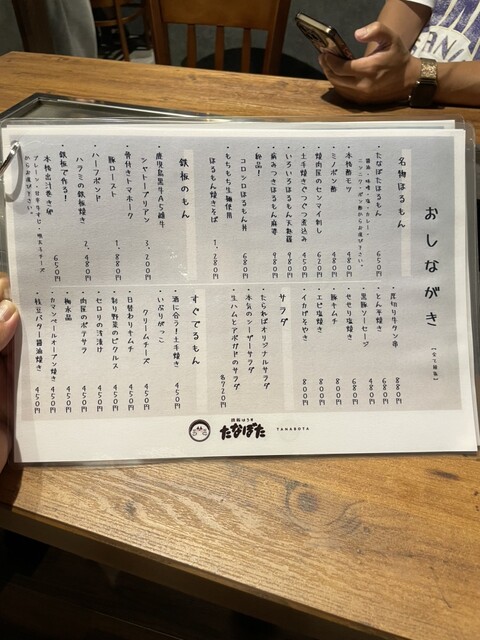 おしながき
【全て税抜】
名物ほるもん
・たなぼたほるもん 650円
醤油・味噌・塩・カレー・
ニンニク・ポン酢からお選び下さい。
・本格酢モツ 480円
・ミノポン酢 480円
・焼肉屋のセンマイ刺し 620円
・土手焼きぐつぐつ煮込み 450円
・いろりろほるもん天麩羅 980円
・病みつきほるもん麻婆 980円
・絶品!
コロコロほるもん丼 680円
・もちもち生麺使用
ほるもん焼きそば 1,280円
鉄板のもん
・鹿児島黒牛A5雌牛
シャトーブリアン 3,200円
・骨付きトマホーク
豚ロースト 1,880円
・ハーフポンド
ハラミの鉄板焼き 2,480円
・鉄板で作る!
本格出汁巻き卵 650円
プレーン・甘辛牛すじ・明太チーズ
からお選び下さい。
・厚切り牛タン串 880円
・とん平焼き 680円
・黒豚ソーセージ 480円
・せせり塩焼き 680円
・豚キムチ 800円
・エビ塩焼き 800円
・イカげそやき 800円
サラダ
・たらればオリジナルサラダ
・本気のシーザーサラダ
・生ハムとアボカドのサラダ
各720円
すぐでるもん
・酒に合う!土手焼き 450円
・いぶりがっこ
クリームチーズ 450円
・日替わりキムチ 450円
・彩り野菜のピクルス 450円
・セロリの浅漬け 450円
・肉屋のポテサラ 450円
・梅水晶 450円
・カマンベールオーブン焼き 450円
・枝豆バター醤油焼き 450円
たなぼた
TANABOTA